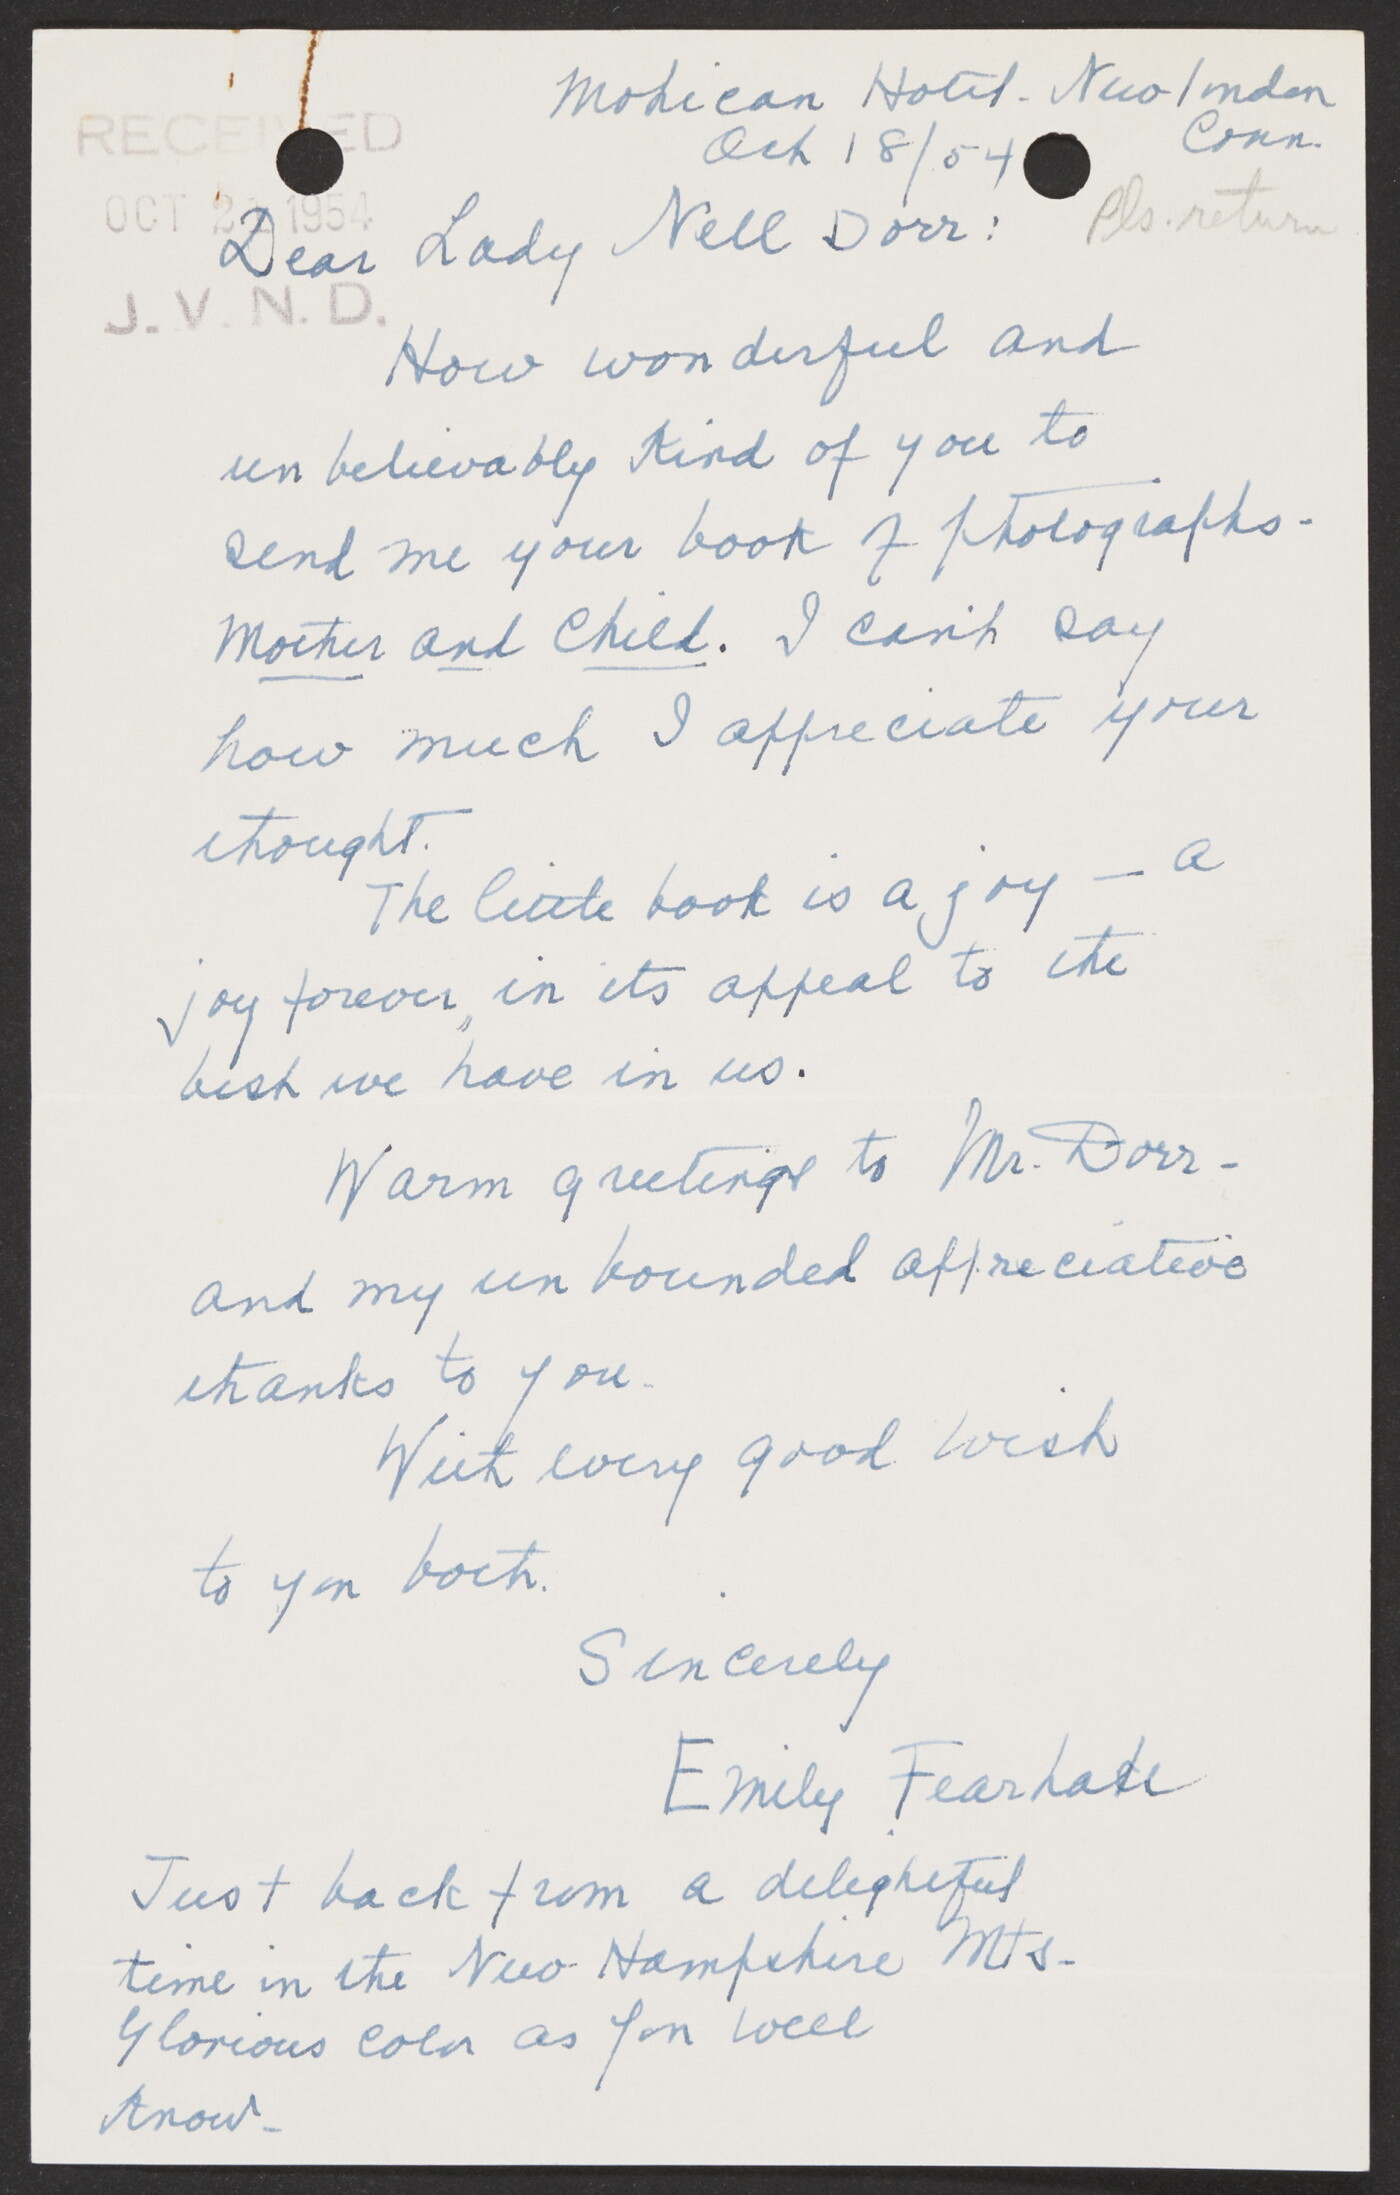 Mohican Hotel - New London
Conn.
Oct 18/54
Pls. return
RECEIVED
OCT 1954
J. V. N. D.
Dear Lady Nell Dorr:
How wonderful and
unbelievably kind of you to
send me your book of photographs -
Mother and Child. I can't say
how much I appreciate your
thought.
The little book is a joy — a
joy forever, in its appeal to the
best we have in us.
Warm greetings to Mr. Dorr -
and my unbounded appreciative
thanks to you.
With every good wish
to you both.
Sincerely
Emily
Just back from a delightful
time in the New Hampshire Mts -
Glorious color as you well
know -